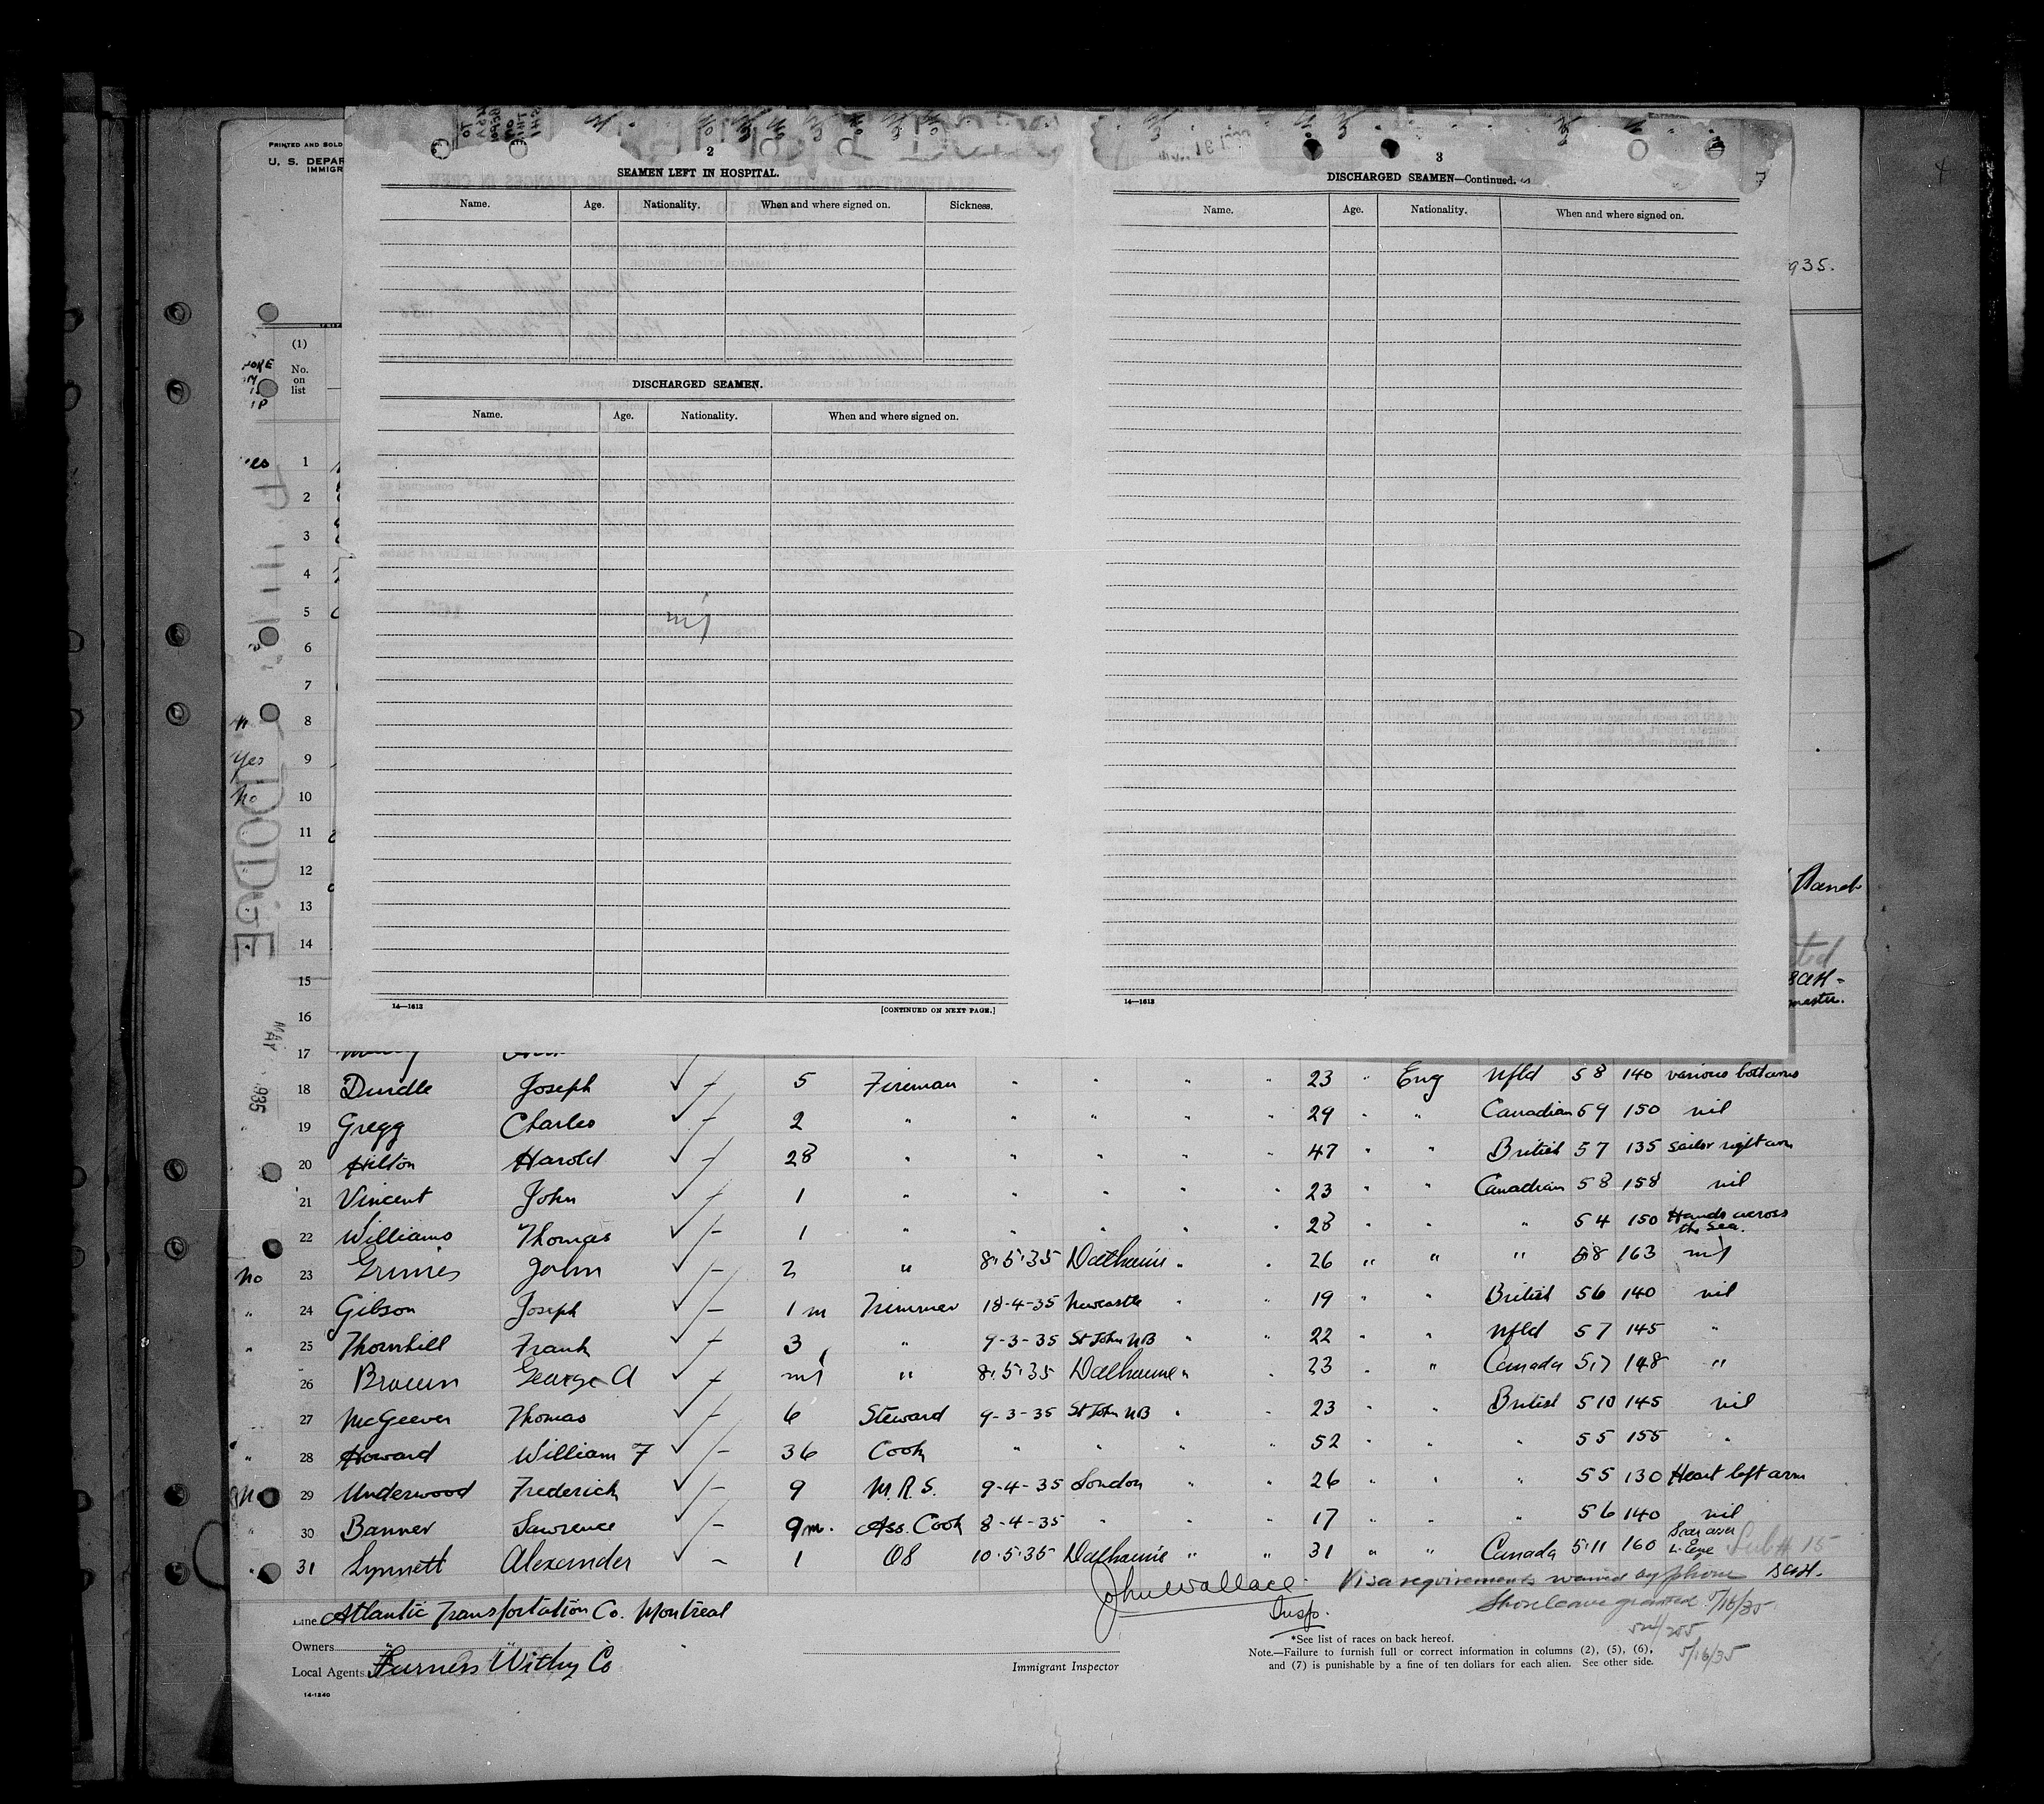 2
SEAMEN LEFT IN HOSPITAL.
Name. Age. Nationality. When and where signed on. Sickness.
DISCHARGED SEAMEN.
Name. Age. Nationality. When and where signed on.
nil
14—1613 [CONTINUED ON NEXT PAGE.]
3
DISCHARGED SEAMEN—Continued.
Name. Age. Nationality. When and where signed on.
14—1613
PRINTED AND SOLD
U. S. DEPAR
IMMIGR
935.
(1)
No.
on
list
1
2
3
4
5
6
7
8
Yes 9
No 10
11
12
13
14
15
16
17
DODGE
MAY 1935
18 Durdle Joseph ✓ – 5 Fireman " " " " 23 " Eng Nfld 5 8 140 various both arms
19 Gregg Charles ✓ – 2 " " " " " 29 " " Canadian 5 9 150 nil
20 Hilton Harold ✓ – 28 " " " " " 47 " " British 5 7 135 Sailor right arm
21 Vincent John ✓ – 1 " " " " " 23 " " Canadian 5 8 158 nil
22 Williams Thomas ✓ – 1 " " " " " 28 " " " 5 4 150 Hands across the Sea.
No 23 Grimes John ✓ – 2 " 8.5.35 Dalhousie " " 26 " " " 5 8 163 nil
" 24 Gibson Joseph ✓ – 1 m Trimmer 18-4-35 Newcastle " " 19 " " British 5 6 140 nil
" 25 Thornhill Frank ✓ – 3 " 9-3-35 St John NB " " 22 " " Nfld 5 7 145 "
" 26 Brown George A ✓ – nil " 8.5.35 Dalhousie " " 23 " " Canada 5,7 148 "
27 McGeever Thomas ✓ – 6 Steward 9-3-35 St John NB " " 23 " " British 5 10 145 nil
" 28 Howard William F ✓ – 36 Cook " " " " 52 " " " 5 5 155 "
29 Underwood Frederick ✓ – 9 M.R.S. 9-4-35 London " " 26 " " " 5 5 130 Heart left arm
" 30 Banner Lawrence ✓ – 9m. Ass. Cook 8-4-35 " " " 17 " " " 5 6 140 nil
" 31 Lynnett Alexander ✓ – 1 OS 10.5.35 Dalhousie " " 31 " " Canada 5.11 160 Scar over L. Eye
John Wallace Visa requirements waived by phone
Insp. Shore leave granted 5/16/35
Line Atlantic Transportation Co. Montreal
Owners " "
Local Agents Furness Withy Co
Immigrant Inspector
*See list of races on back hereof.
Note.—Failure to furnish full or correct information in columns (2), (5), (6),
and (7) is punishable by a fine of ten dollars for each alien. See other side.
5/16/35
14-1240